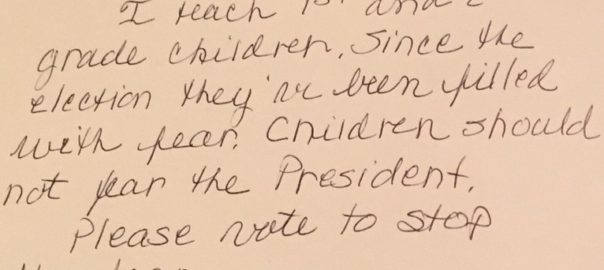 I teach 1st and 2
grade children. Since the
election they've been filled
with fear. Children should
not fear the President.
Please vote to stop